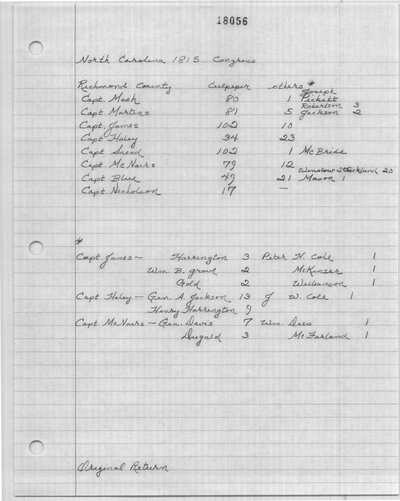 18056
North Carolina 1815 Congress
Richmond County Culpeper others *
Capt. Mask 80 1 Joseph Pickett
Capt. Martins 81 5 Robertson 3 Jackson 2
Capt. James 102 10
Capt Haley 34 23
Capt Snead 102 1 McBride
Capt. McNairs 79 12
Capt. Blue 49 21 Winslow Strickland 20 Mason 1
Capt. Nicholson 17 —
*
Capt. James — Harrington 3 Peter H. Cole 1
Wm B. 2 McKinzer 1
Gold 2 Williamson 1
Capt Haley — Gen. A. Jackson 13 J W. Cole 1
Henry Harrington 9
Capt McNairs — Gen. Davis 7 Wm. Dees 1
Dugald 3 McFarland 1
Original Return